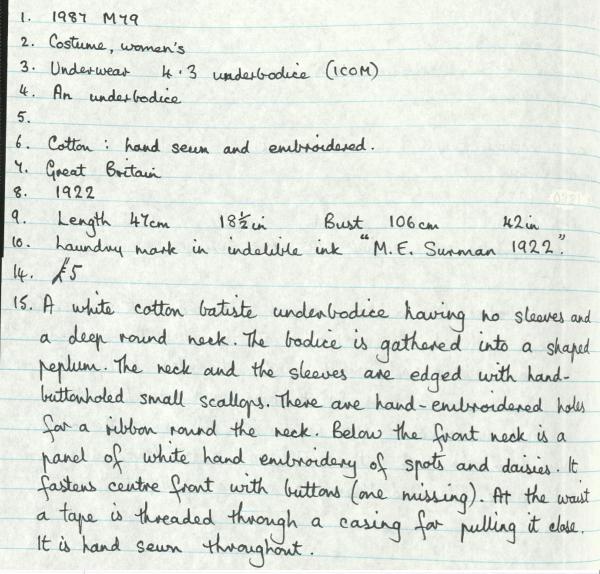 1. 1987 M79
2. Costume, women's
3. Underwear 4.3 underbodice (ICOM)
4. An underbodice
5.
6. Cotton : hand sewn and embroidered.
7. Great Britain
8. 1922
9. Length 47cm 18½in Bust 106cm 42in
10. Laundry mark in indelible ink "M.E. Surman 1922".
14. £5
15. A white cotton batiste underbodice having no sleeves and
a deep round neck. The bodice is gathered into a shaped
peplum. The neck and the sleeves are edged with hand-
buttonholed small scallops. There are hand-embroidered holes
for a ribbon round the neck. Below the front neck is a
panel of white hand embroidery of spots and daisies. It
fastens centre front with buttons (one missing). At the waist
a tape is threaded through a casing for pulling it close.
It is hand sewn throughout.